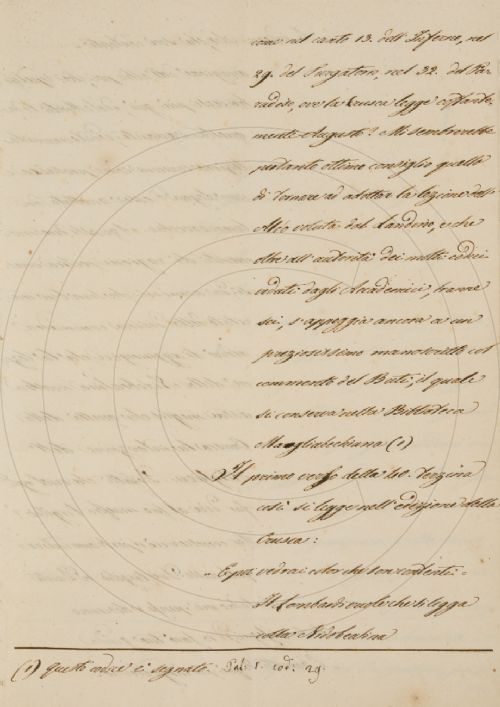 come nel canto 13. dell'Inferno, nel
29. del Purgatorio, nel 32. del Pa-
radiso, ove la Crusca legge costante-
mente Augusto? Mi sembrerebbe
pertanto ottimo consiglio quello
di tornare ad adottar la lezione dell'
Aldo voluta dal Landino, e che
oltre all'autorità dei molti codici
veduti dagli Accademici, tranne
sei, s'appoggia ancora a un
preziosissimo manoscritto col
commento del Buti, il quale
si conserva nella Biblioteca
Magliabechiana (1)
Il primo verso della 40. Terzina
così si legge nell'edizione della
Crusca:
E poi vedrai color che son contenti:
Il Lombardi vuole che si legga
colla Nidobeatina
(1) Questo codice è segnato: Pal. 1. cod. 29.